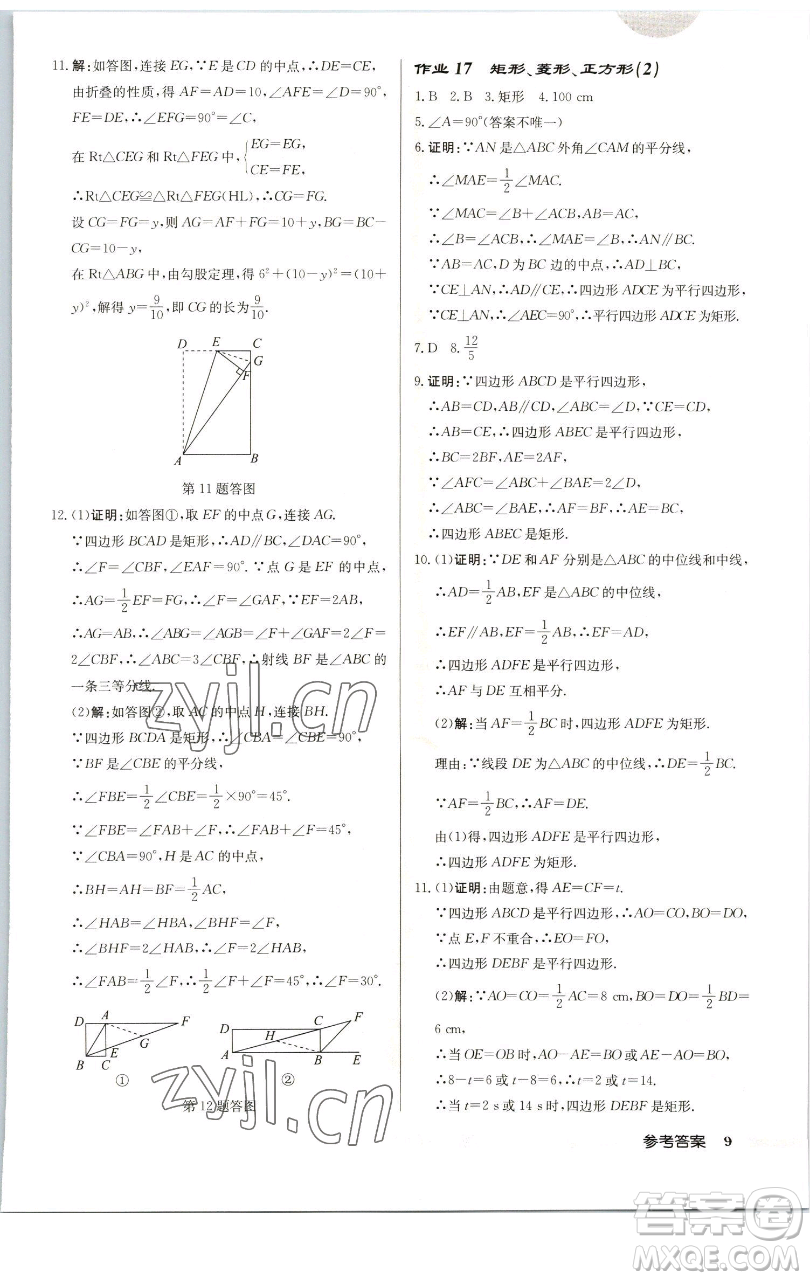 11.解:如答图,连接EG,∵E是CD的中点,∴DE=CE,
由折叠的性质,得AF=AD=10,∠AFE=∠D=90°,
FE=DE,∴∠EFG=90°=∠C,
在Rt△CEG和Rt△FEG中,{EG=EG, CE=FE,
∴Rt△CEG≌Rt△FEG(HL),∴CG=FG.
设CG=FG=y,则AG=AF+FG=10+y,BG=BC-
CG=10-y,
在Rt△ABG中,由勾股定理,得6²+(10-y)²=(10+
y)²,解得y=9/10,即CG的长为9/10.
D E C
G
F
A B
第11题答图
12.(1)证明:如答图①,取EF的中点G,连接AG.
∵四边形BCAD是矩形,∴AD∥BC,∠DAC=90°,
∴∠F=∠CBF,∠EAF=90°.∵点G是EF的中点,
∴AG=1/2EF=FG,∴∠F=∠GAF,∵EF=2AB,
∴AG=AB,∴∠ABG=∠AGB=∠F+∠GAF=2∠F=
2∠CBF,∴∠ABC=3∠CBF,∴射线BF是∠ABC的
一条三等分线.
(2)解:如答图②,取AC的中点H,连接BH.
∵四边形BCDA是矩形,∴∠CBA=∠CBE=90°.
∵BF是∠CBE的平分线,
∴∠FBE=1/2∠CBE=1/2×90°=45°.
∵∠FBE=∠FAB+∠F,∴∠FAB+∠F=45°.
∵∠CBA=90°,H是AC的中点,
∴BH=AH=BF=1/2AC,
∴∠HAB=∠HBA,∠BHF=∠F,
∴∠BHF=2∠HAB,∴∠F=2∠FAB,
∴∠FAB=1/2∠F,∴∠F+1/2∠F=45°,∴∠F=30°.
D A F
G
B C E
①
D C F
H
A B E
②
第12题答图
作业17 矩形、菱形、正方形(2)
1.B 2.B 3.矩形 4.100 cm
5.∠A=90°(答案不唯一)
6.证明:∵AN是△ABC外角∠CAM的平分线,
∴∠MAE=1/2∠MAC.
∵∠MAC=∠B+∠ACB,AB=AC,
∴∠B=∠ACB,∴∠MAE=∠B,∴AN∥BC.
∵AB=AC,D为BC边的中点,∴AD⊥BC,
∵CE⊥AN,∴AD∥CE,∴四边形ADCE为平行四边形,
∵CE⊥AN,∴∠AEC=90°,∴平行四边形ADCE为矩形.
7.D 8.12/5
9.证明:∵四边形ABCD是平行四边形,
∴AB=CD,AB∥CD,∵CE=CD,
∴AB=CE,∴四边形ABEC是平行四边形,
∴BC=2BF,AE=2AF,
∵∠AFC=∠ABC+∠BAF=2∠ABC,
∴∠ABC=∠BAF,∴AF=BF,∴AE=BC,
∴四边形ABEC是矩形.
10.(1)证明:∵DE和AF分别是△ABC的中位线和中线,
∴AD=1/2AB,EF是△ABC的中位线,
∴EF∥AB,EF=1/2AB,∴EF=AD,
∴四边形ADFE是平行四边形,
∴AF与DE互相平分.
(2)解:当AF=1/2BC时,四边形ADFE为矩形.
理由:∵线段DE为△ABC的中位线,∴DE=1/2BC.
∵AF=1/2BC,∴AF=DE.
由(1)得,四边形ADFE是平行四边形,
∴四边形ADFE为矩形.
11.(1)证明:由题意,得AE=CF=t.
∵四边形ABCD是平行四边形,∴AO=CO,BO=DO,
∵点E,F不重合,∴EO=FO,
∴四边形DEBF是平行四边形.
(2)解:∵AO=CO=1/2AC=8 cm,BO=DO=1/2BD=
6 cm,
∴当OE=OB时,四边形DEBF是矩形,
∴8-t=6或t-8=6,∴t=2或14.
∴当t=2 s或14 s时,四边形DEBF是矩形.
参考答案 9
zyjl.cn
zyjl.cn
答案圈
MXQE.COM